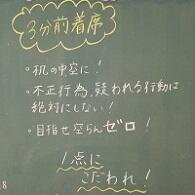 3分前着席
・机の中空に!
・不正行為、疑われる行動は
絶対にしない!
・目指せ空らんゼロ!
1点に
こだわれ!
8